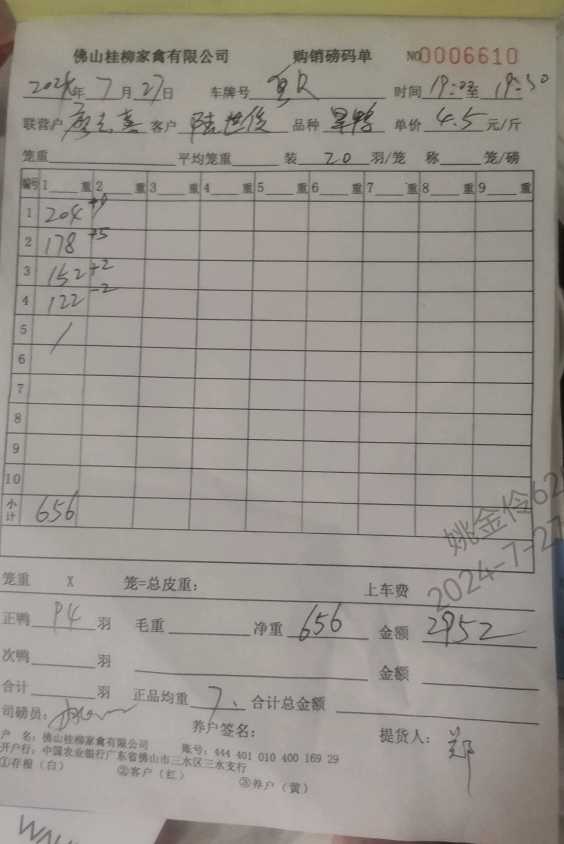 佛山桂柳家禽有限公司 购销磅码单 NO 0006610
2024年7月27日 车牌号 时间 19:20至19:30
联营户 客户 陆世俊 品种 单价 4.5 元/斤
笼重 平均笼重 装 20 羽/笼 称 笼/磅
编号 1 重 2 重 3 重 4 重 5 重 6 重 7 重 8 重 9 重
1 204
2 178 +5
3 152 +2
4 122 -2
5 /
6
7
8
9
10
小计 656
姚金伶62
2024-7-27
笼重 X 笼=总皮重： 上车费
正鸭 94 羽 毛重 净重 656 金额 2952
次鸭 羽 金额
合计 羽 正品均重 7. 合计总金额
司磅员： 养户签名： 提货人： 郑
户 名：佛山桂柳家禽有限公司 账号：444 401 010 400 169 29
开户行：中国农业银行广东省佛山市三水区三水支行
①存根（白） ②客户（红） ③养户（黄）